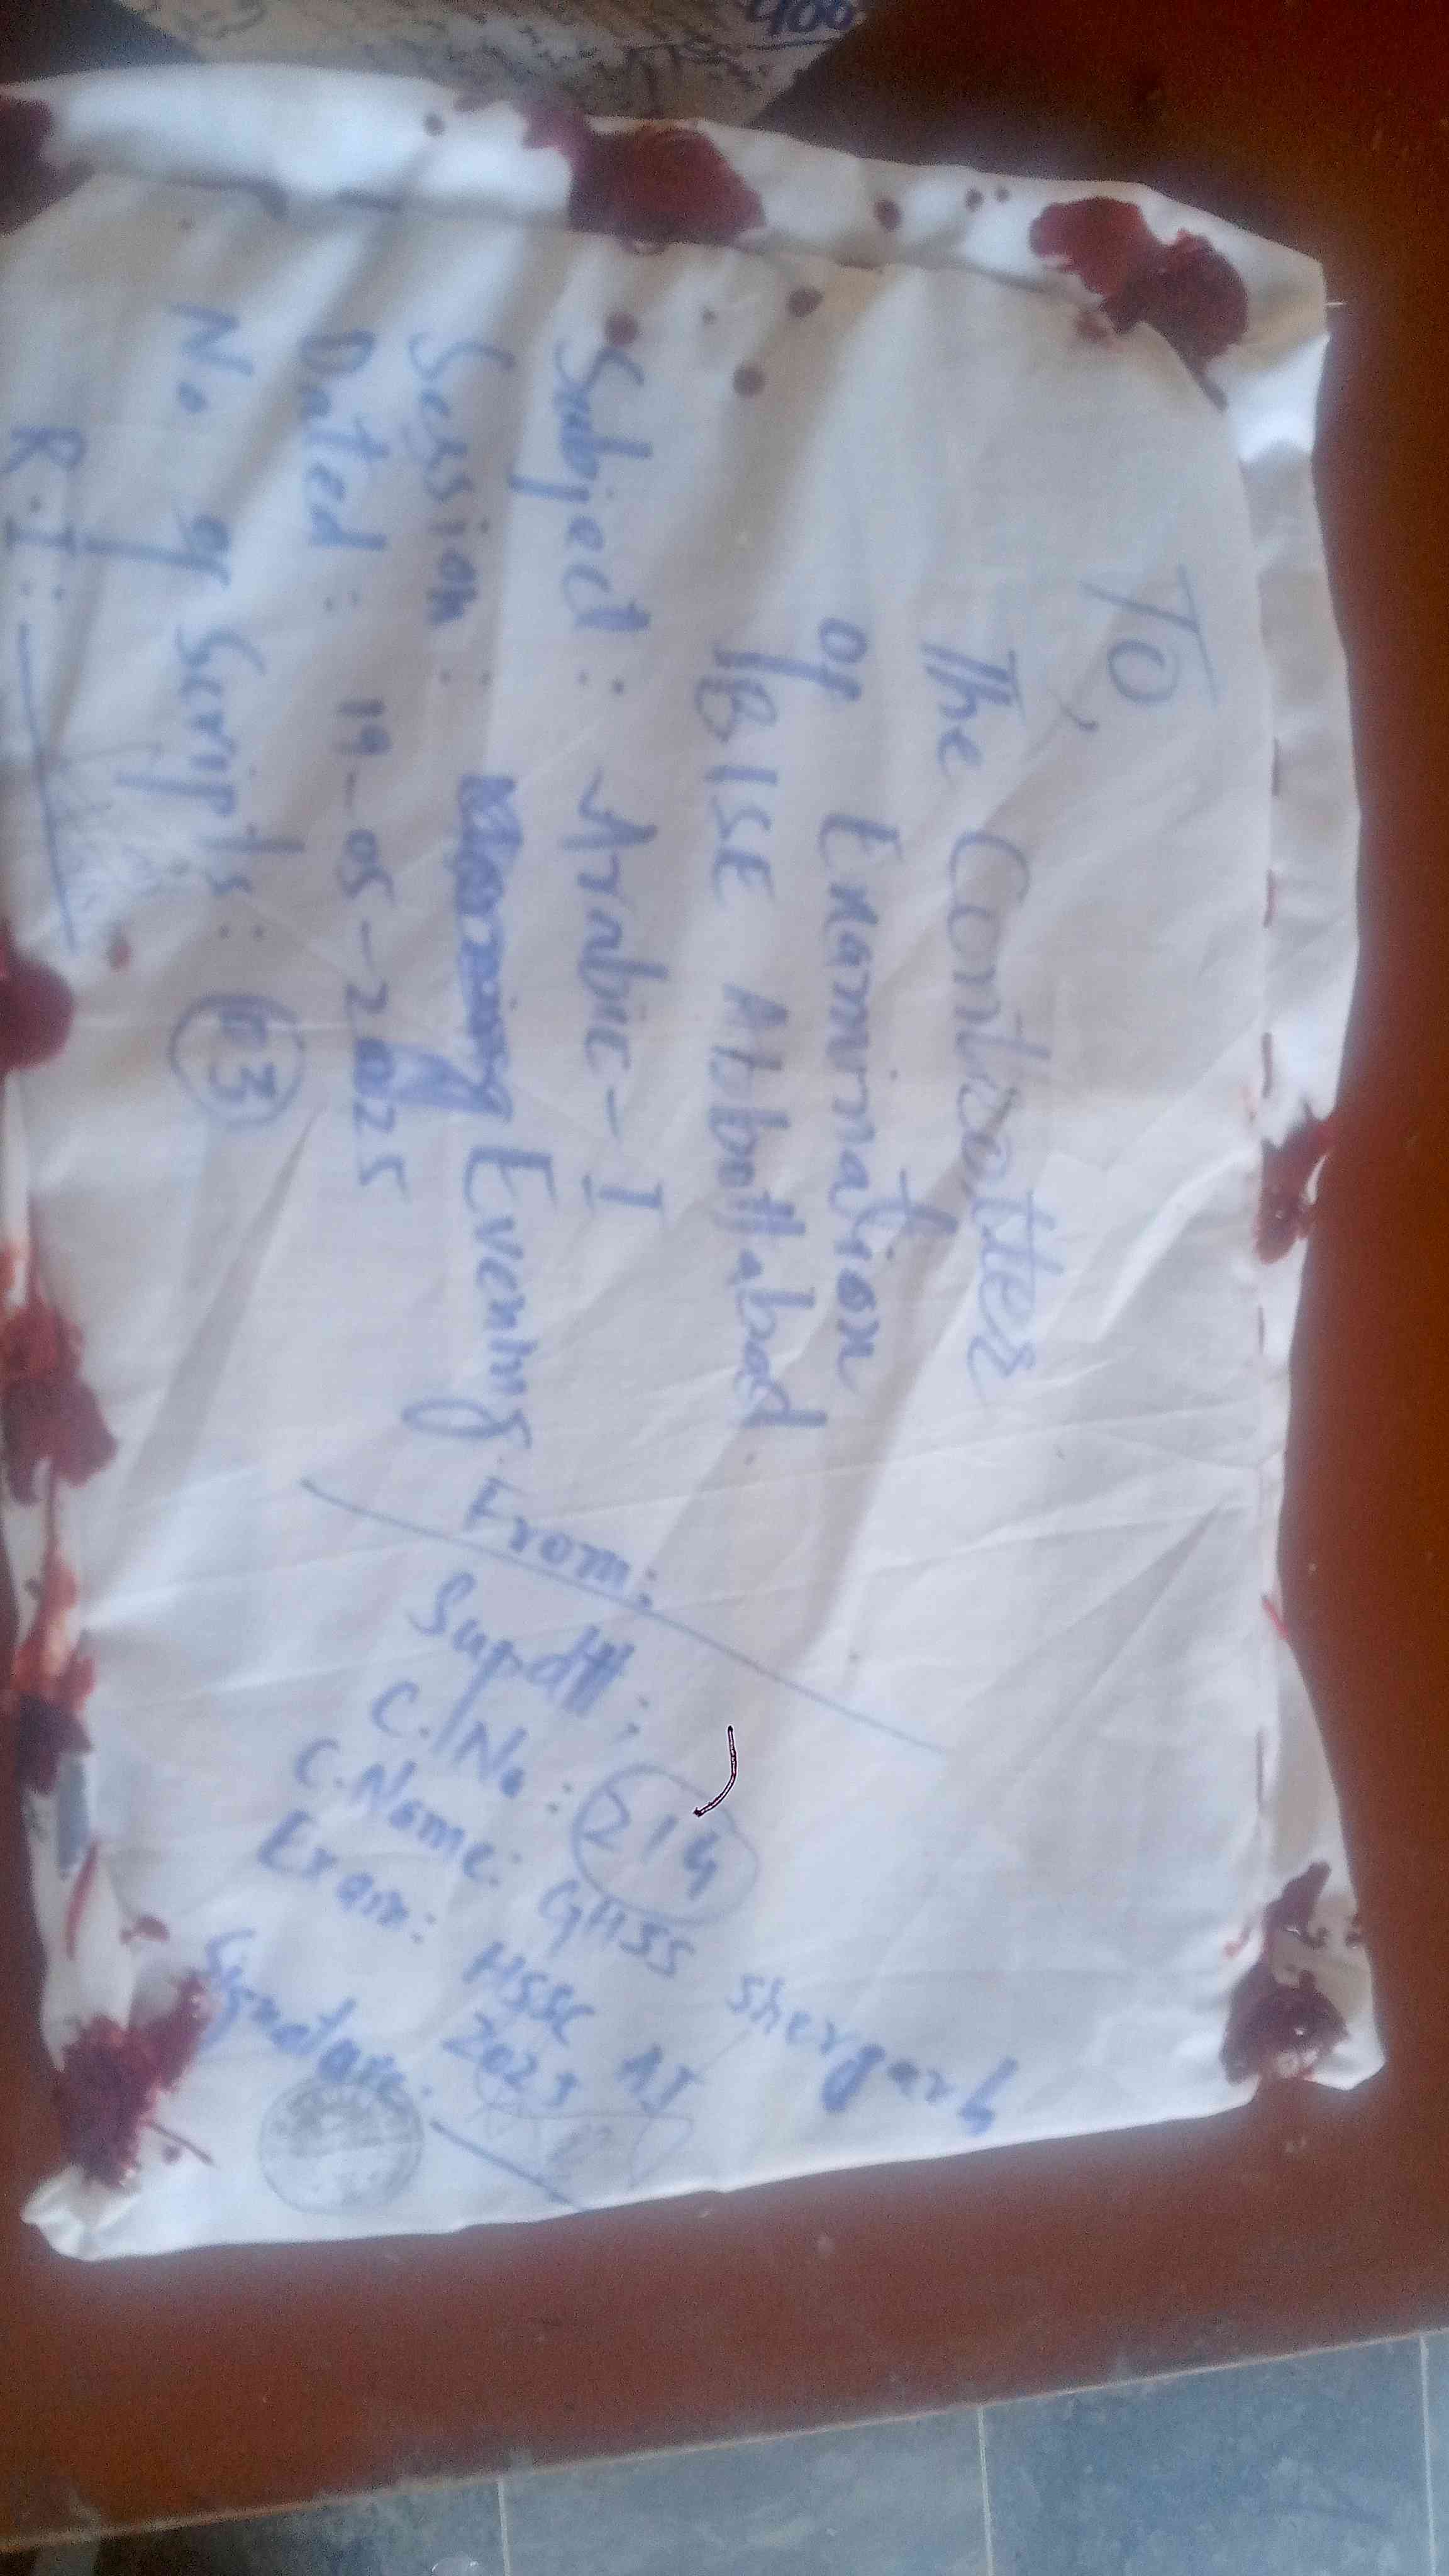 To,
The Controller
Of Examination
BISE Abbottabad.
Subject: Arabic-I
Session: Evening
Dated: 19-05-2025
No of Scripts: 03
R.I:
From:
Supdtt;
C.No: 214
C.Name: GHSS Shergarh
Exam: HSSC AI
2025
Signature: